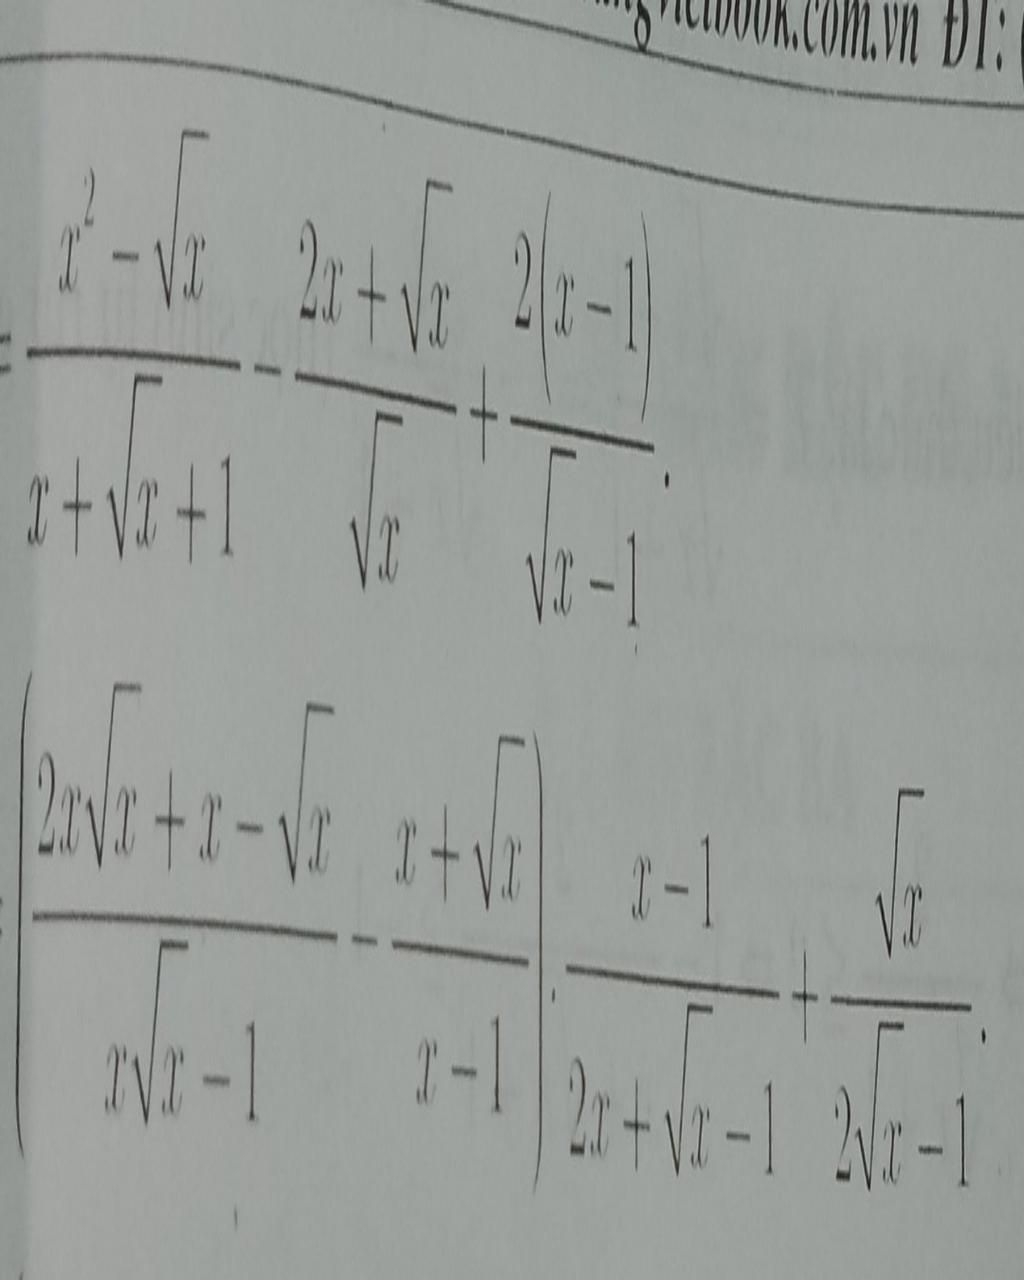 book.com.vn ĐT:
= \frac{x^2 - \sqrt{x}}{x + \sqrt{x} + 1} - \frac{2x + \sqrt{x}}{\sqrt{x}} + \frac{2(x - 1)}{\sqrt{x} - 1}.
\left(\frac{2x\sqrt{x} + x - \sqrt{x}}{x\sqrt{x} - 1} - \frac{x + \sqrt{x}}{x - 1}\right).\frac{x - 1}{2x + \sqrt{x} - 1} + \frac{\sqrt{x}}{2\sqrt{x} - 1}.